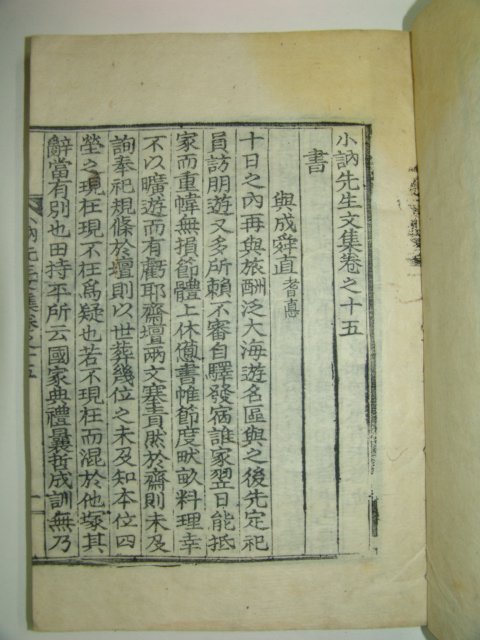 小訥先生文集卷之十五
書
與成舜直 耆悳
十日之內再與旅酬泛大海遊名區與之後先定祀
員訪朋遊又多所賴不審自驛發宿誰家翌日能抵
家而重幃無損節體上休僃書帷節度畎畝料理幸
不以曠遊而有虧耶齋壇兩文塞責然於齋則未及
詢奉祀規條於壇則以世葬幾位之未及知本位四
塋之現在現不在爲疑也若不現在而混於他塚其
辭當有別也田持平所云國家典禮曩哲成訓無乃